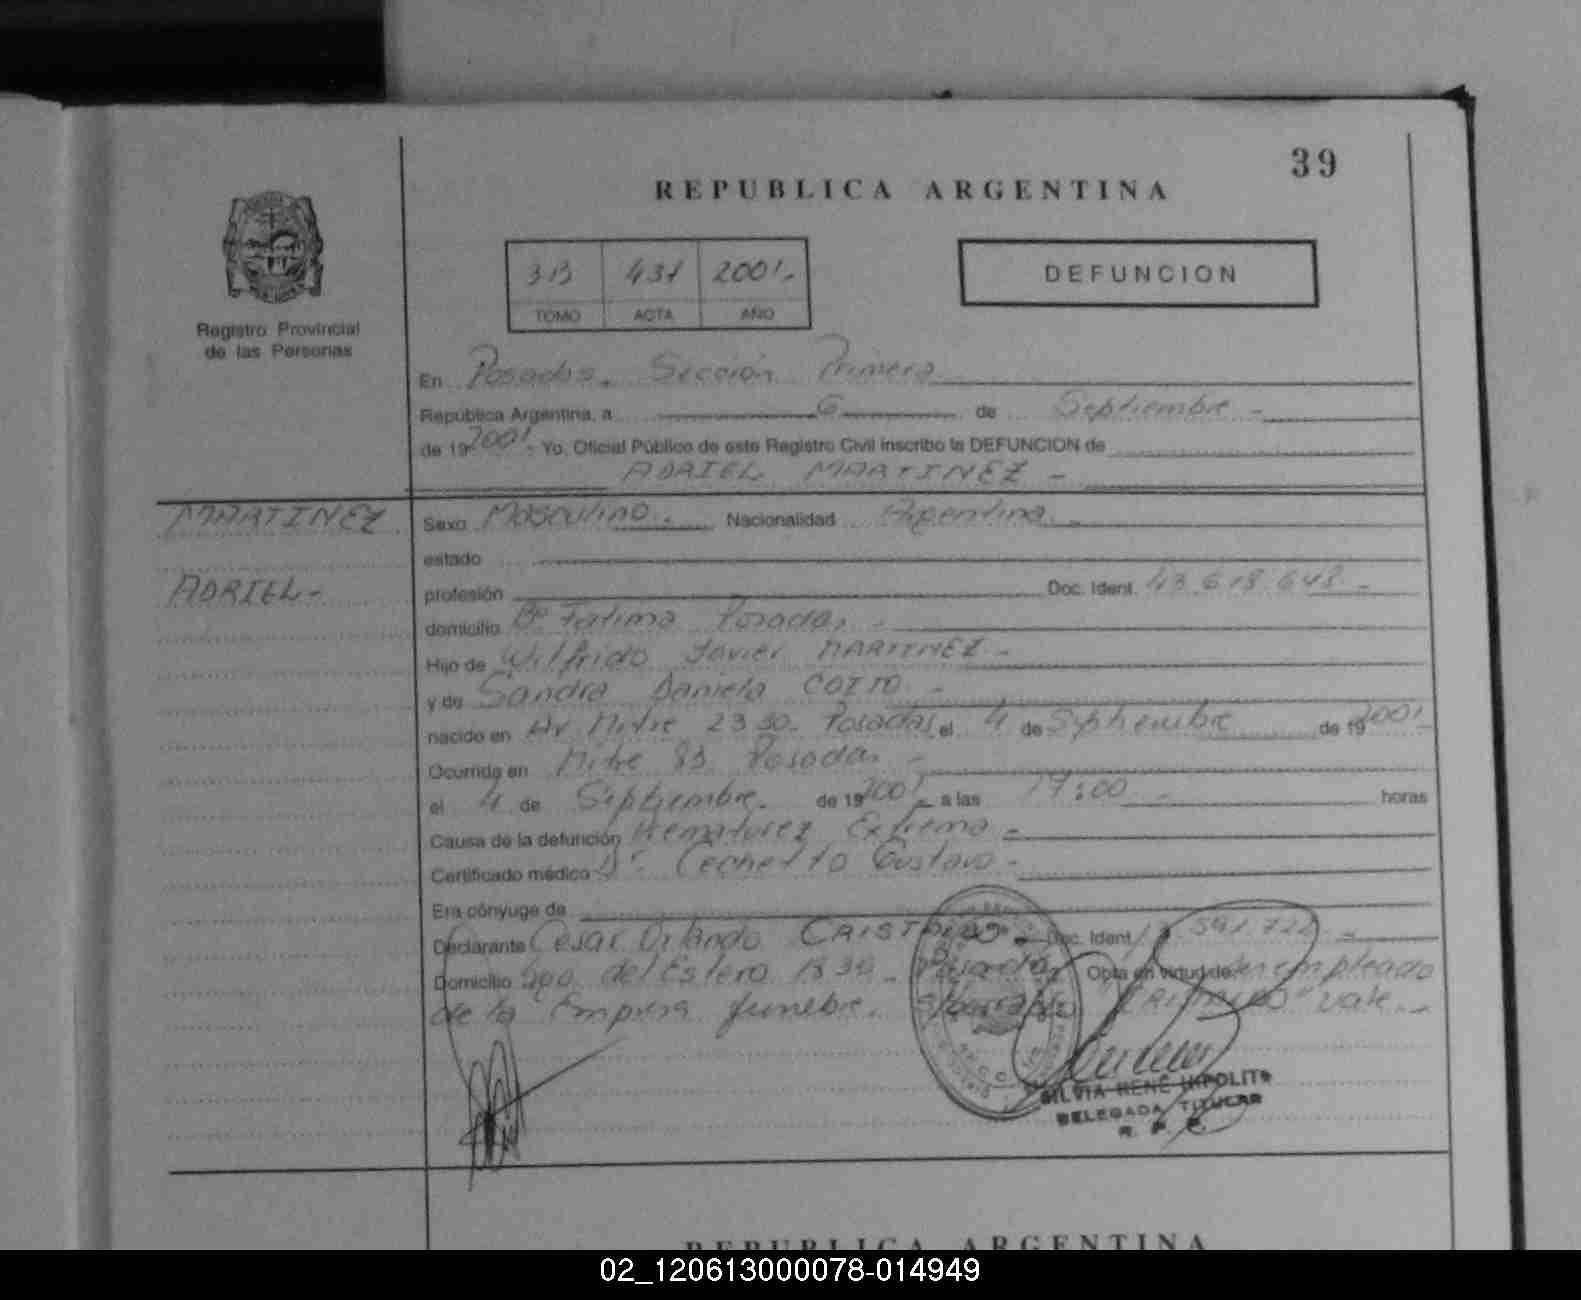 39
REPUBLICA ARGENTINA
3B 431 2001.-
TOMO ACTA AÑO
DEFUNCION
Registro Provincial
de las Personas
En Posadas. Sección Primera
República Argentina, a 6 de Septiembre -
de 19 2001 - Yo, Oficial Público de este Registro Civil inscribo la DEFUNCION de
ADRIEL MARTINEZ -
MARTINEZ
ADRIEL -
Sexo Masculino. Nacionalidad Argentina. -
estado
profesión Doc. Ident. 43.618.648 -
domicilio Bº Fatima Posadas -
Hijo de Wilfrido Javier MARTINEZ -
y de Sandra Daniela -
nacido en Av Mitre 2330. Posadas el 4 de Septiembre de 19 2001 -
Ocurrida en Mitre Posadas -
el 4 de Septiembre. de 19 2001 a las :00 - horas
Causa de la defunción Prematurez Extrema -
Certificado médico Dr. Cechetto Gustavo -
Era cónyuge de
Declarante Cesar Orlando CRISTALDO. Doc. Ident. -
Domicilio Sgo. del Estero 1830 - Posadas Obra en virtud de ser empleado
de la Empresa funebre. CRISTALDO" Vale. -
SILVIA RENÉ HIPOLITO
DELEGADA TITULAR
R. P. P.
REPUBLICA ARGENTINA
02_120613000078-014949